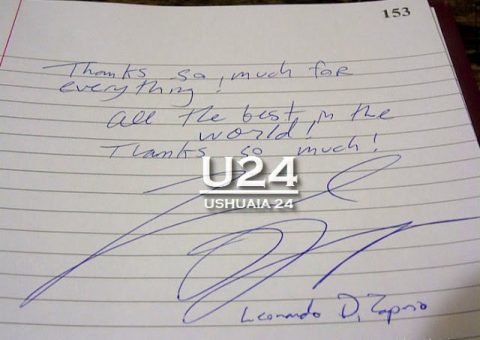 153
Thanks so much for
everything!
All the best in the
world!
Thanks so much!
U24
USHUAIA 24
Leonardo DiCaprio